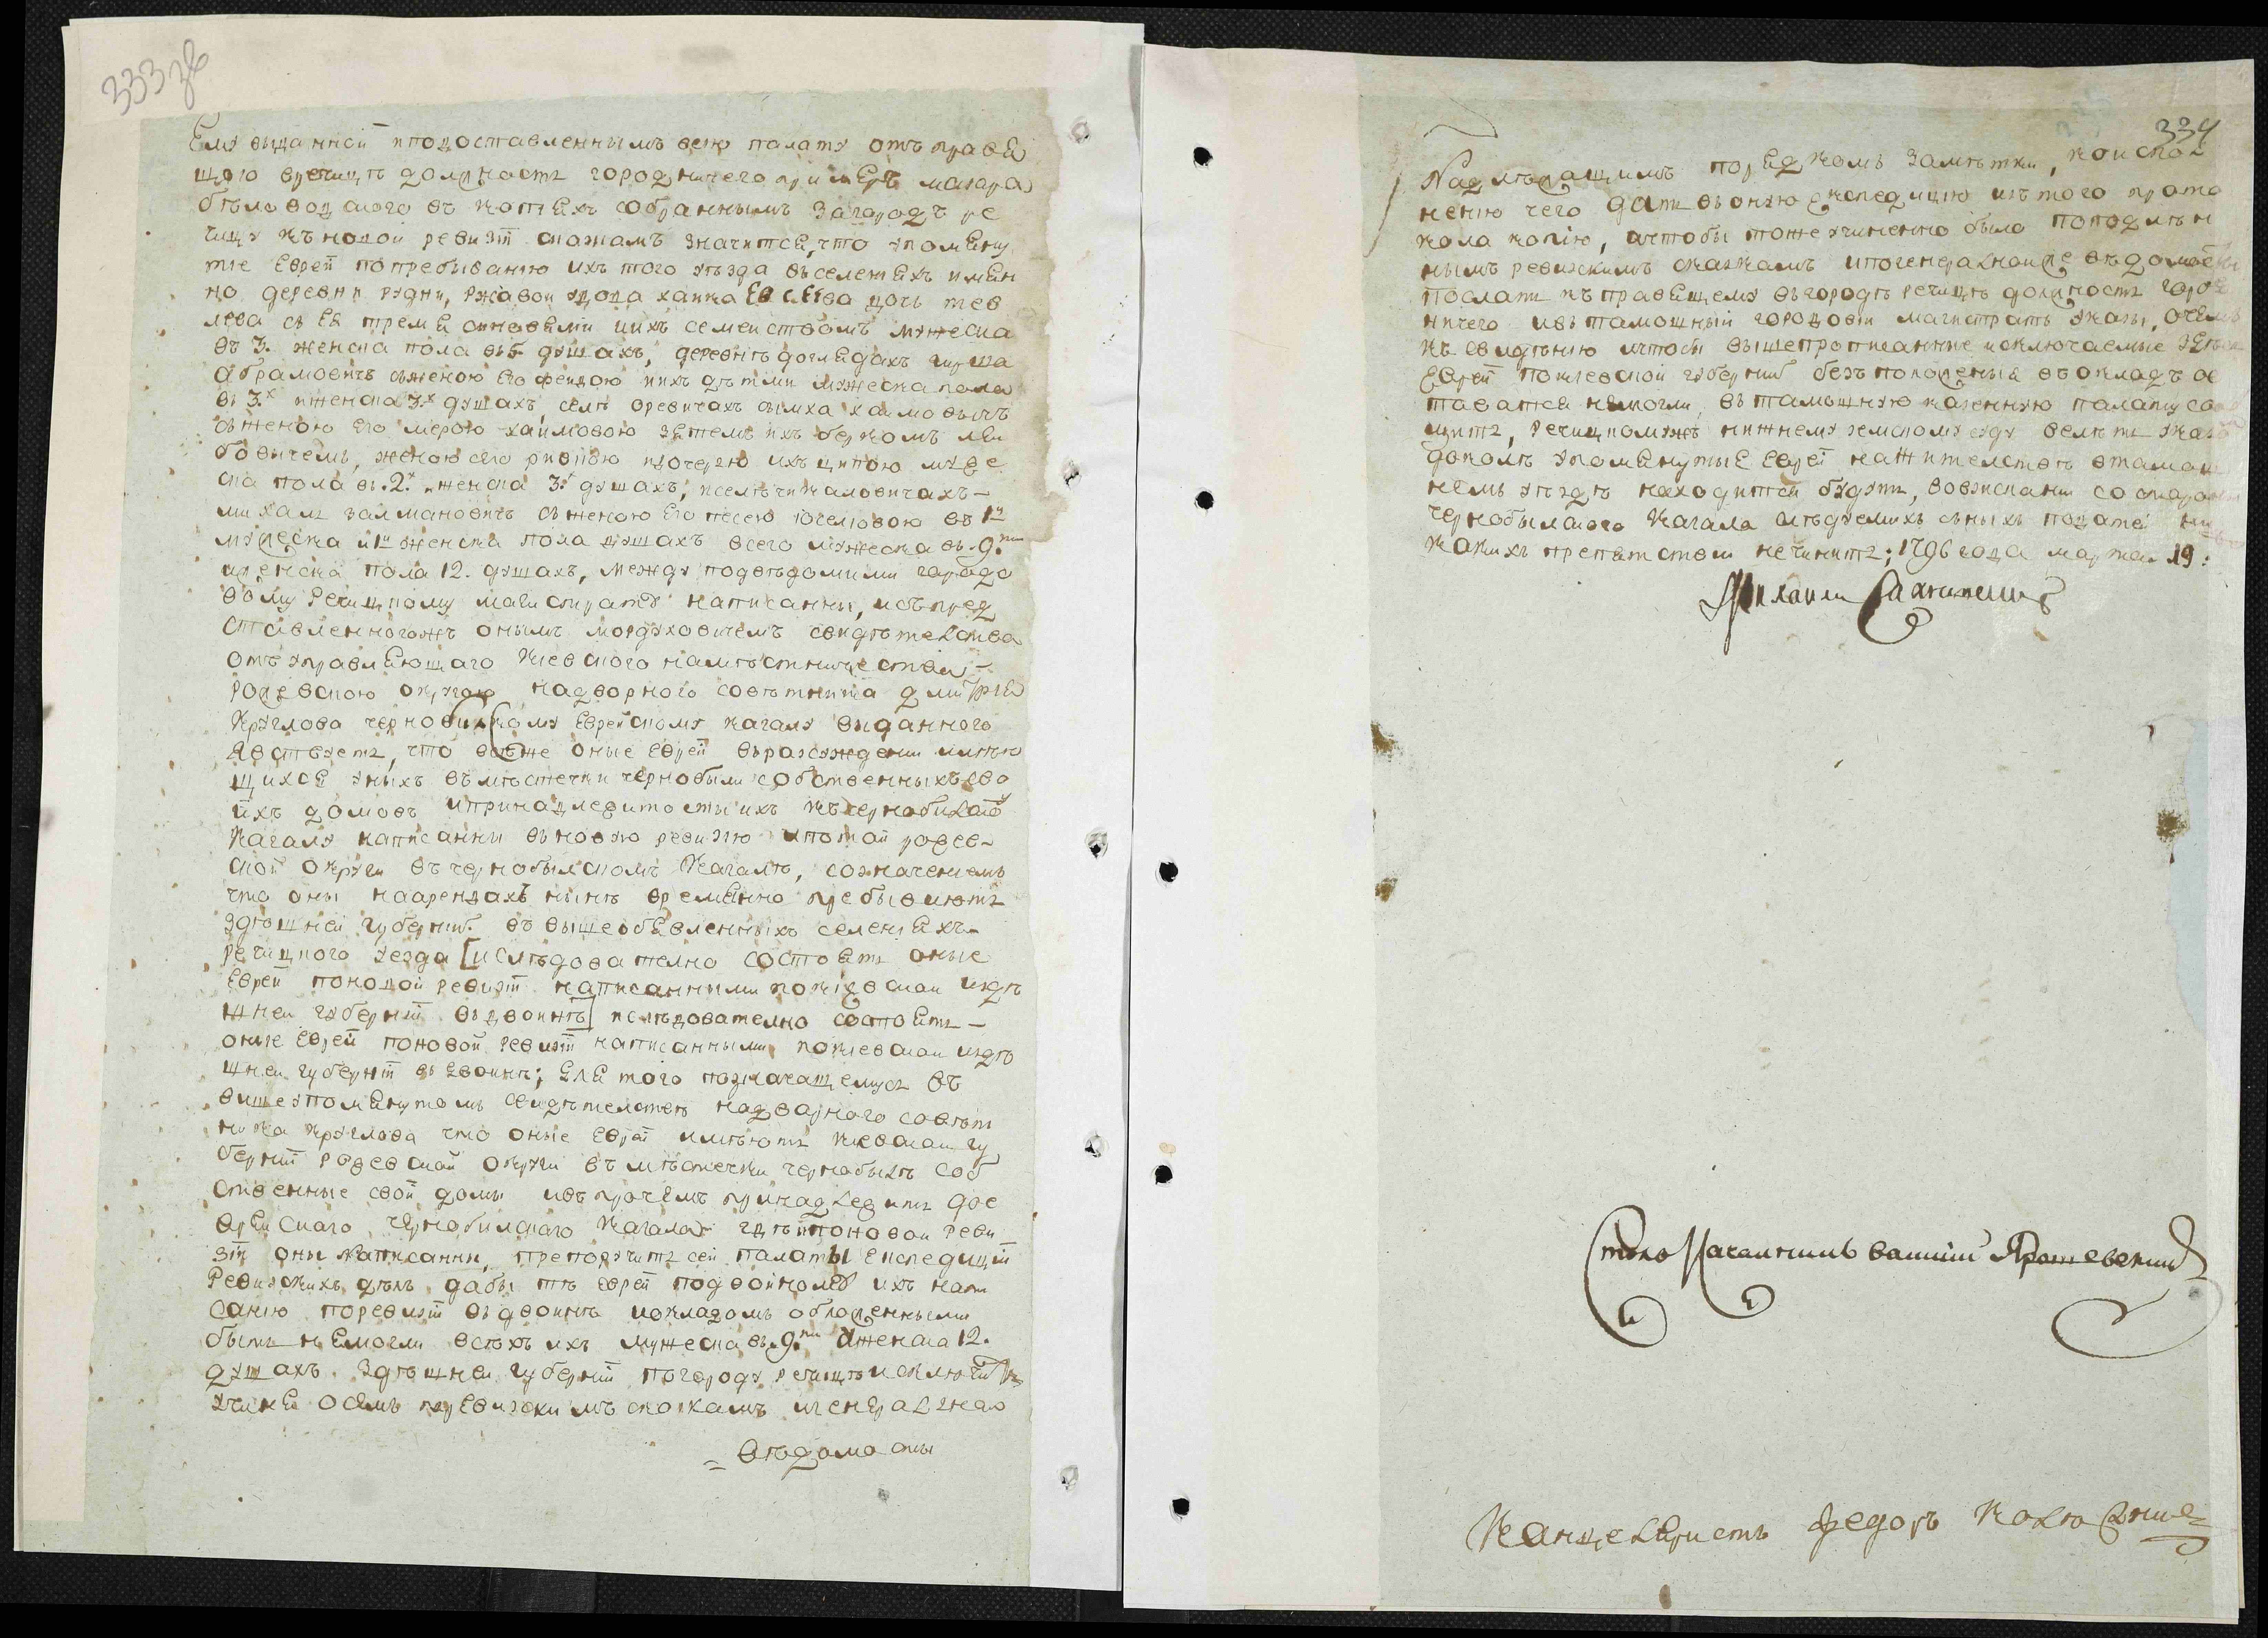 333 зв
Ему выданной и подоставленнымъ всею палату отъ правя
щаго вречицѣ должность городничего примеръ маіора
бѣловодского въ копіяхъ собраннымъ загородъ ре
чицу къ новой ревизіи сказкамъ значится, что упомяну
тіе Евреи попребыванію ихъ того уѣзда въселеніяхъ имен
но деревни рудни, ржавой вдова хаика дочь лев
лева съ ея тремя синовями иихъ семействомъ мужеска
въ 3. женска пола въ 6 душахъ, деревнѣ доглядахъ гирша
абрамовичъ съженою его феидою иихъ дѣтми мужеска пола
въ 3х иженска 3х душахъ, селѣ оревичахъ сымха хаимовичъ
съженою его мерою хаимовою зятемъ ихъ беркомъ лей
бовичемъ, женою сего ривкою идочерю ихъ ципою муже
ска пола въ .2х женска 3х душахъ, иселѣ чикаловичахъ –
михаль залмановичъ съ женою его песею іоселіовою въ 1й
мужеска и 1й женска пола душахъ всего мужеска въ .9ти
женска пола 12. душахъ, между подвѣдомими городо
вому речицкому магистрату написанни, исъпред
ставленногожъ онымъ мордуховичемъ свидѣтелства
отъ управляющаго Кіевского намѣстничества –
рожевскою округою надворного совѣтника дмитрія
Круглова чернобилскому еврейскому кагалу виданного
явствуетъ, что всѣже оные евреи въразсуждении имѣю
щихся уныхъ въмѣстечки чернобыли собственныхъ сво
ихъ домовъ ипринадлежитости ихъ къчернобилскому
Кагалу написанны въновую ревизію ипотой рожев–
ской округи въ чернобылскомъ Кагалѣ, созначениемъ
что они наарендахъ нынѣ временно пребываютъ
здѣшней губерніи въ вышеобъявленныхъ селеніяхъ –
речицкого уезда [и слѣдователно состоятъ оные
Евреи поновой ревизіи написанними покіевской издѣ
шнеи губерніи въдвоинѣ] ислѣдователно состоятъ –
оные Евреи поновой ревизіи написанными покіевской издѣ
шнеи губерніи въ двоинѣ; для того позначащемуся въ
вишеупомянутомъ свидѣтелствѣ надворного совѣт
ника круглова что оные Евреи имѣютъ кіевской гу
берніи рожевской округи въ мѣстечки чернобылѣ соб
ственные свои домы ивъпрочемъ принадлежатъ дое
врейского чернобилского Кагала гдѣ ипоновой реви
зіи они написанни, препоручитъ сей палаты експедиціи
Ревизскихъ дѣлъ дабы тѣ евреи подвойному ихъ напи
санію поревизіи въдвоинѣ иокладомъ обложенными
быть немогли всѣхъ ихъ мужеска въ .9ти иженска 12.
душахъ здѣшнеи губерніи погороду речицѣ исключить
учиня осемъ поревизскимъ сказкамъ игенералной
= вѣдомости
334
Надлѣжащимъ порядкомъ замѣтки, коиспол
нению чего дать въоную експедицию изъ того прото
кола копію, ачтобы тоже учиненно было поподлѣн
нымъ ревизскимъ сказкамъ ипогенералнои вѣдомости
послать къправящему въгородѣ речицѣ должность горо
ничего ивътамошный городови магистратъ указы, очемъ
къ свидѣнию ичтобы вышепрописанние исключаемые
Евреи покіевской губерніи безъ положенія въокладъ о
таватся немогли, въ тамошнюю казенную палату сооб
щитъ, речицкомужъ нижнему земскому суду велѣтъ указом
доколѣ упомянутые Евреи нажителствѣ втамош
немъ уѣздѣ находится будутъ, вовзискании со стороны
чернобылского Кагала слѣдуемихъ съныхъ податей ни
какихъ препятствии нечинитъ; 1796 года марта 19:
Столоначалникъ
Канцеляристъ федоръ